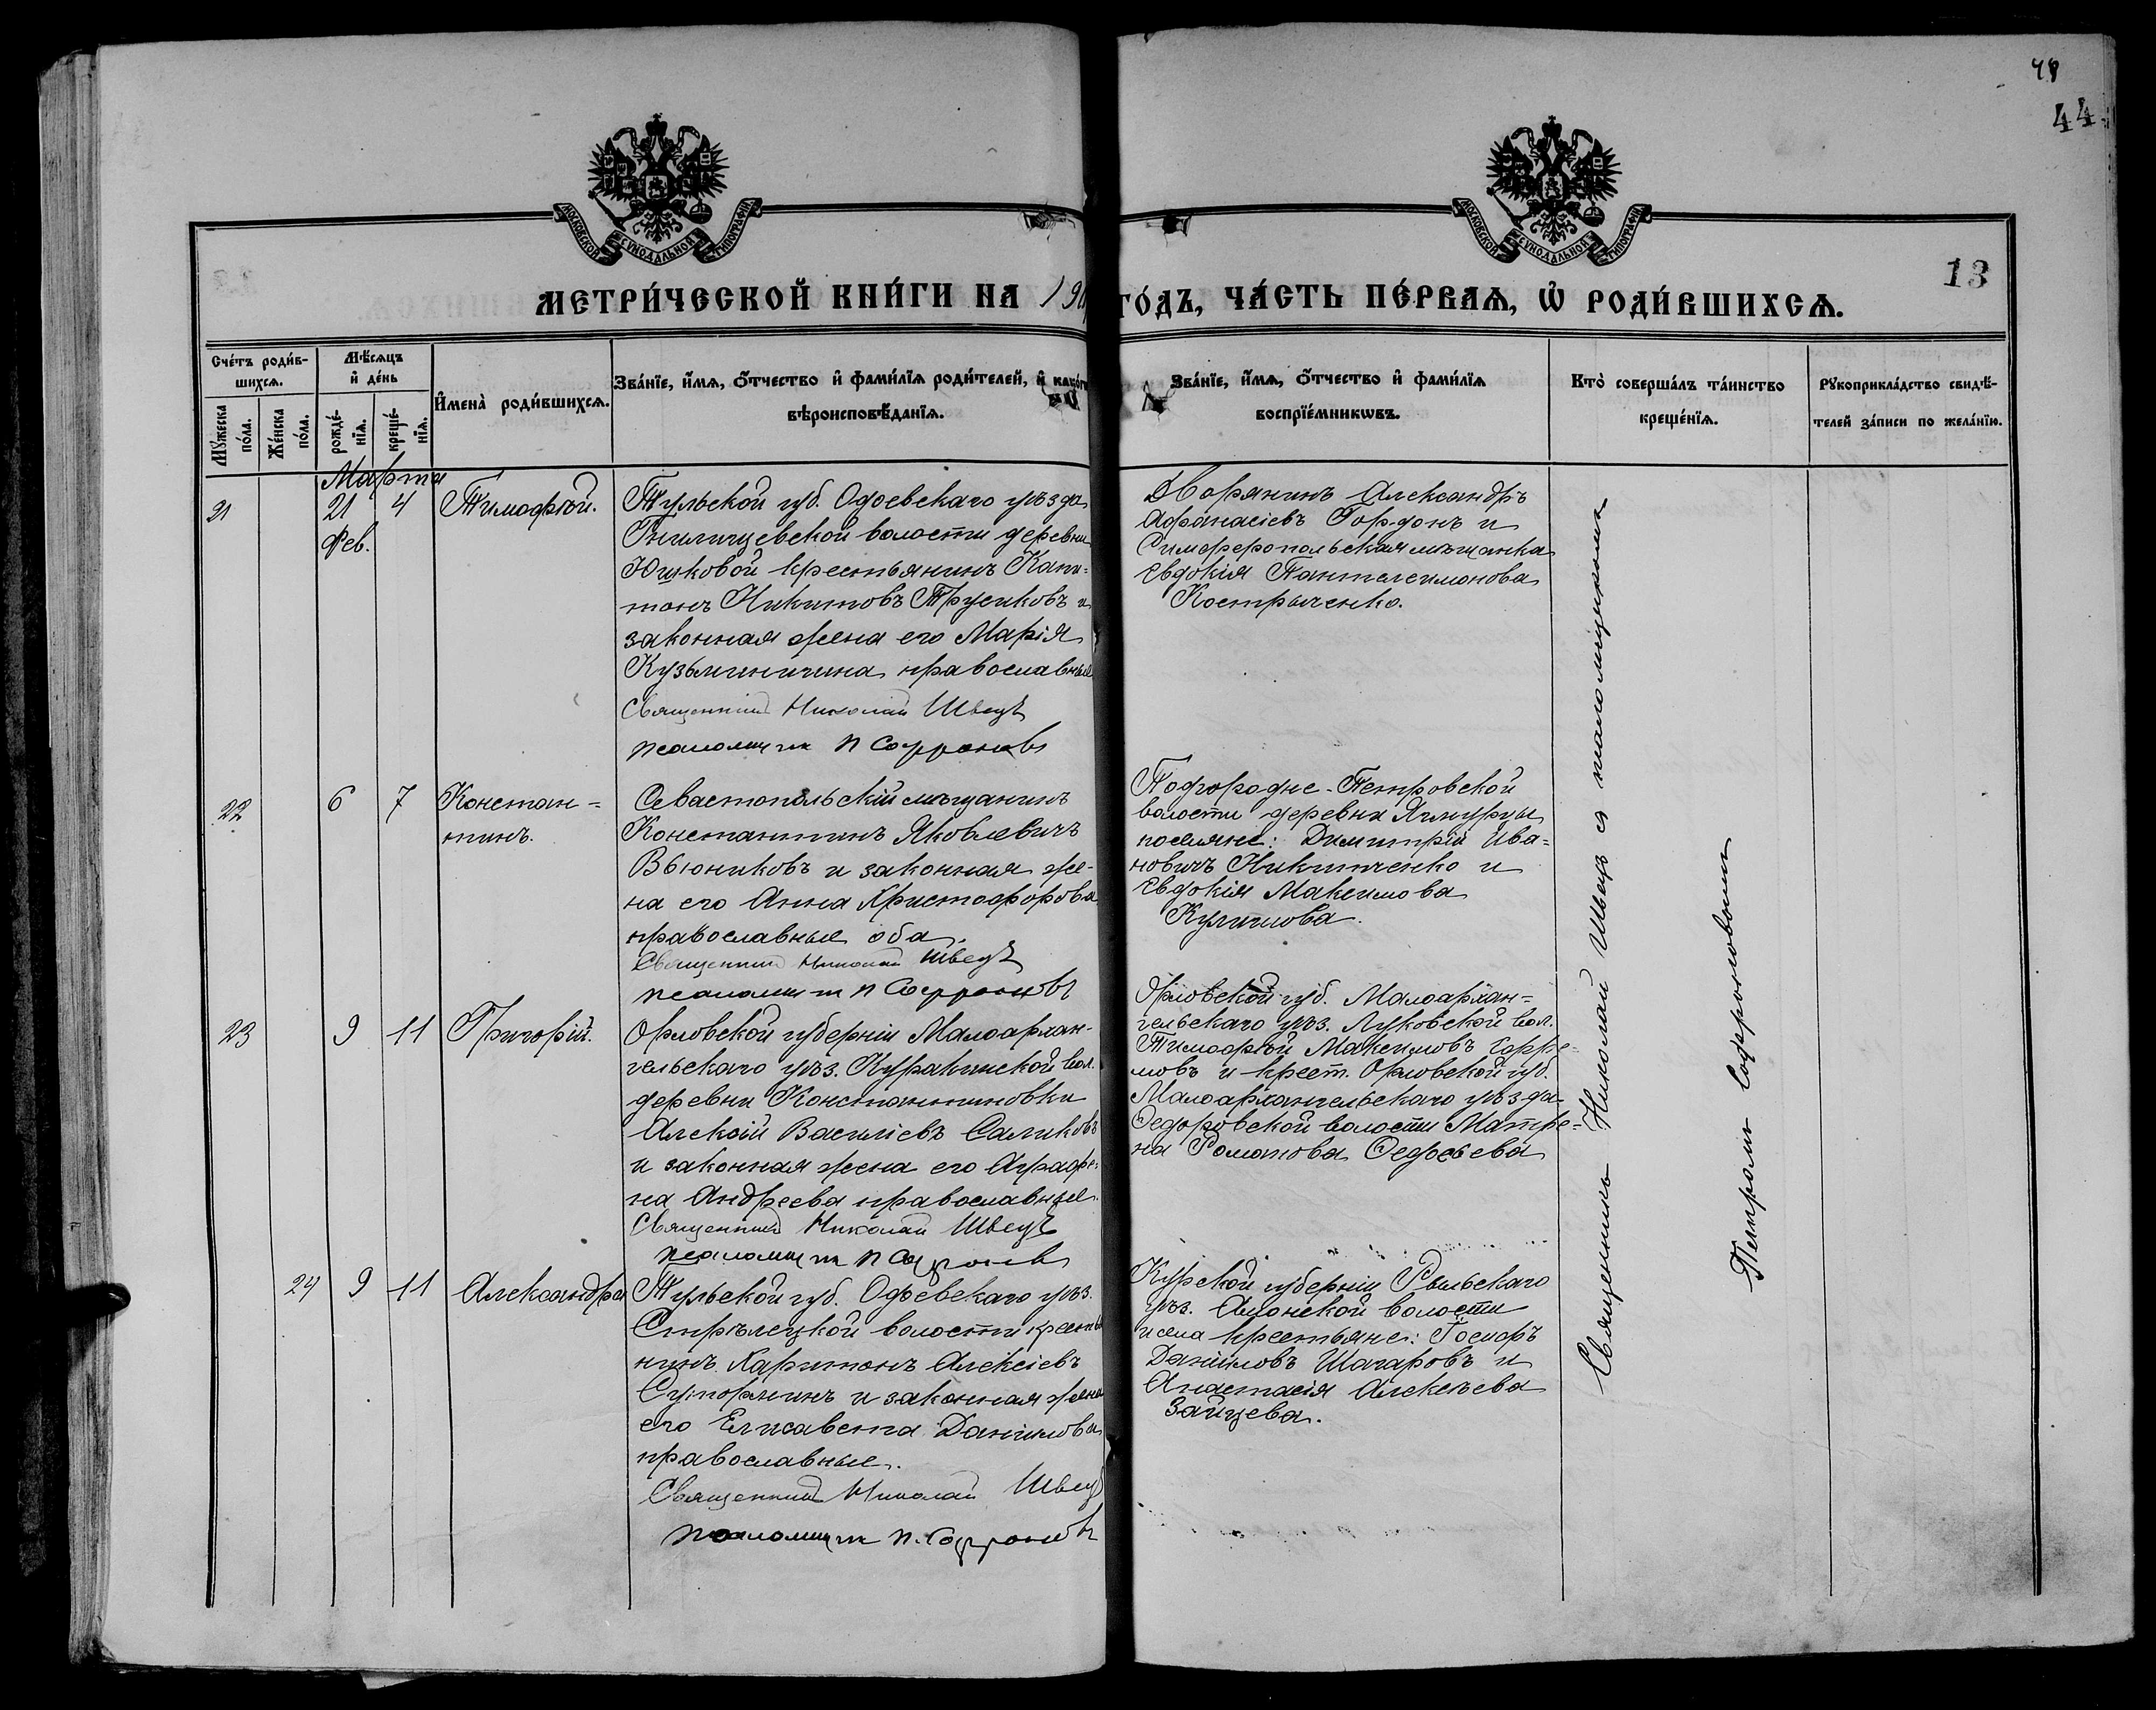 48
44
13
МОСКОВСКОЙ СѴНОДАЛЬНОЙ ТИПОГРАФІИ
МОСКОВСКОЙ СѴНОДАЛЬНОЙ ТИПОГРАФІИ
МЕТРИ́ЧЕСКОЙ КНИ́ГИ НА 190
ГО́ДЪ, ЧА́СТЬ ПЕ́РВАѦ, Ѿ РОДИ́ВШИХСѦ.
Сче́тъ роди́в-
шихсѧ.
Мꙋ́жеска
по́ла.
Же́нска
по́ла.
Мѣ́сѧцъ
и҆ де́нь
рожде́-
нїѧ.
креще́-
нїѧ.
И҆мена̀ роди́вшихсѧ.
Зва́нїе, и҆́мѧ, ѻ҆́тчество и҆ фами́лїѧ роди́телей, и҆ како́гѡ
вѣроисповѣ́данїѧ.
Зва́нїе, и҆́мѧ, ѻ҆́тчество и҆ фами́лїѧ
воспрїе́мникѡвъ.
Кто̀ соверша́лъ та́инство
креще́нїѧ.
Рꙋкоприкла́дство свидѣ́-
телей за́писи по жела́нїю.
Марта
21
21
Фев.
4
Тимофѣй.
Тульской губ. Одоевскаго уѣзда
волости деревни
Юшковой крестьянинъ Капи-
тонъ Никитовъ Трусиковъ и
законная жена его Марія
Кузьминична православные
Священникъ Николай Швецъ
псаломщик П Софроновъ
Дворянинъ Александръ
Афанасіевъ Гордонъ и
Симферопольская мѣщанка
Евдокія Пантелеимонова
Костырченко.
22
6
7
Констан-
тинъ.
Севастопольскій мѣщанинъ
Константинъ Яковлевичъ
Вьюниковъ и законная же-
на его Анна Христофорова
православные оба.
Священникъ Николай Швецъ
псаломщик П Софроновъ
Подгородне-Петровской
волости деревни
поселяне: Димитрій Ива-
новичъ Никитченко и
Евдокія Максимова
23
9
11
Григорій.
Орловской губерніи Малоархан-
гельскаго уѣз. Куракинской вол.
деревни Константиновки
Алексѣй Василіевъ Саликовъ
и законная жена его Аграфе-
на Андреева православные.
Священникъ Николай Швецъ
псаломщик П Софроновъ
Орловской губ. Малоархан-
гельскаго уѣз. Луковской вол.
Тимофѣй Максимовъ Ефре-
мовъ и крест. Орловской губ.
Малоархангельскаго уѣзда
Ѳедоровской волости Матре-
на Романова
24
9
11
Александра
Тульской губ. Одоевскаго уѣз.
Стрѣлецкой волости крестья
нинъ Харитонъ Алексіевъ
Суторминъ и законная жена
его Елисавета Даниилова
православные.
Священникъ Николай Швецъ
псаломщик П. Софроновъ
Курской губерніи Рыльскаго
уѣз. Амонской волости
и села крестьяне: Іосифъ
Данииловъ Шагаровъ и
Анастасія Алексѣева
Зайцева.
Священникъ Николай Швецъ съ псаломщикомъ
Петромъ Софроновымъ